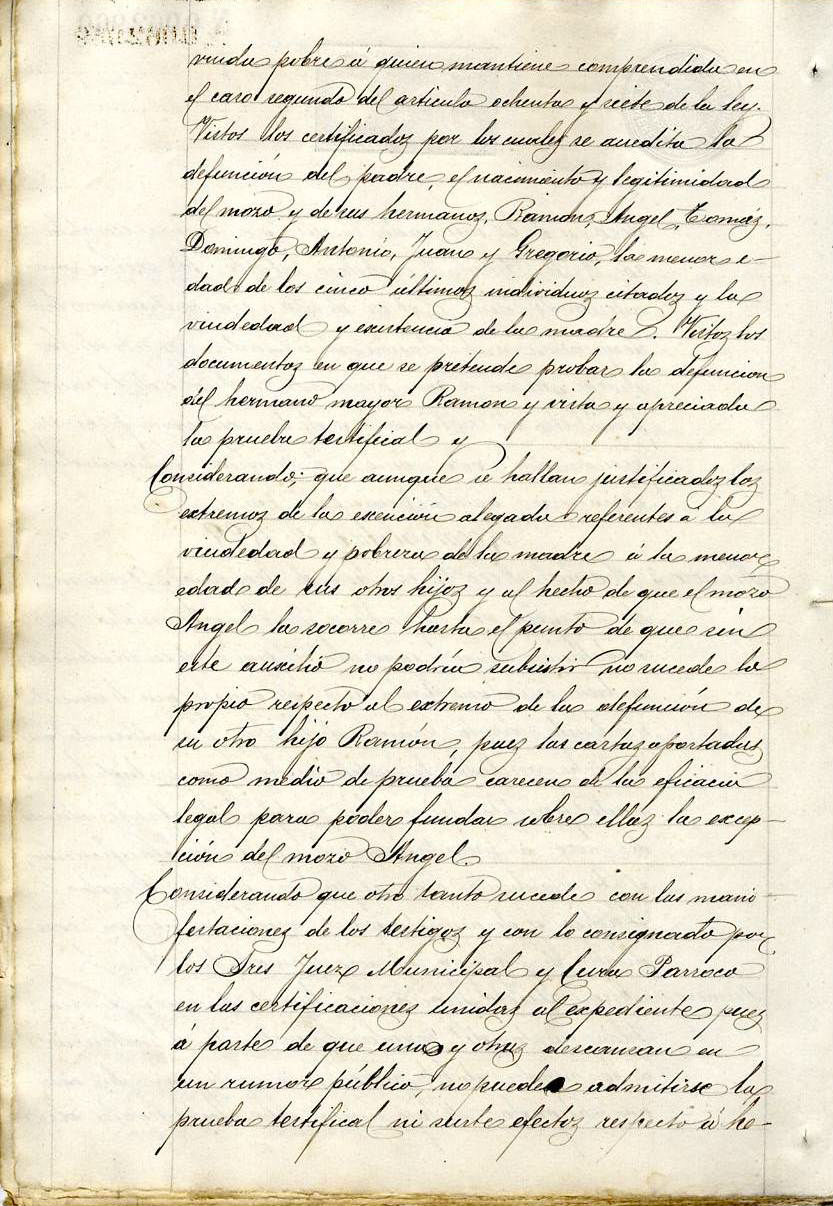 viuda pobre á quien mantiene comprendida en
el caso segundo del articulo ochenta y siete de la ley.
Vistos los certificados por los cuales se acredita la
defunción del padre, el nacimiento y legitimidad
del mozo y de sus hermanos, Ramon, Angel, Tomás,
Domingo, Antonio, Juan y Gregorio, la menor e-
dad de los cinco últimos individuos citados y la
viudedad y existencia de la madre. Vistos los
documentos en que se pretende probar la defuncion
del hermano mayor Ramon y vista y apreciada
la prueba testifical y
Considerando; que aunque se hallan justificados los
extremos de la exención alegada referentes á la
viudedad y pobreza de la madre á la menor
edad de sus otros hijos y al hecho de que el mozo
Angel la socorre hasta el punto de que sin
este auxilio no podría subsistir no sucede lo
propio respecto al extremo de la defunción de
su otro hijo Ramón, pues las cartas aportadas
como medio de prueba carecen de la eficacia
legal para poder fundar sobre ellas la excep-
ción del mozo Angel.
Considerando que otro tanto sucede con las mani-
festaciones de los testigos y con lo consignado por
los Sres Juez Municipal y Cura Parroco
en las certificaciones unidas al expediente pues
á parte de que unos y otras descansan en
un rumor público, no puede admitirse la
prueba testifical ni surte efectos respecto á he-